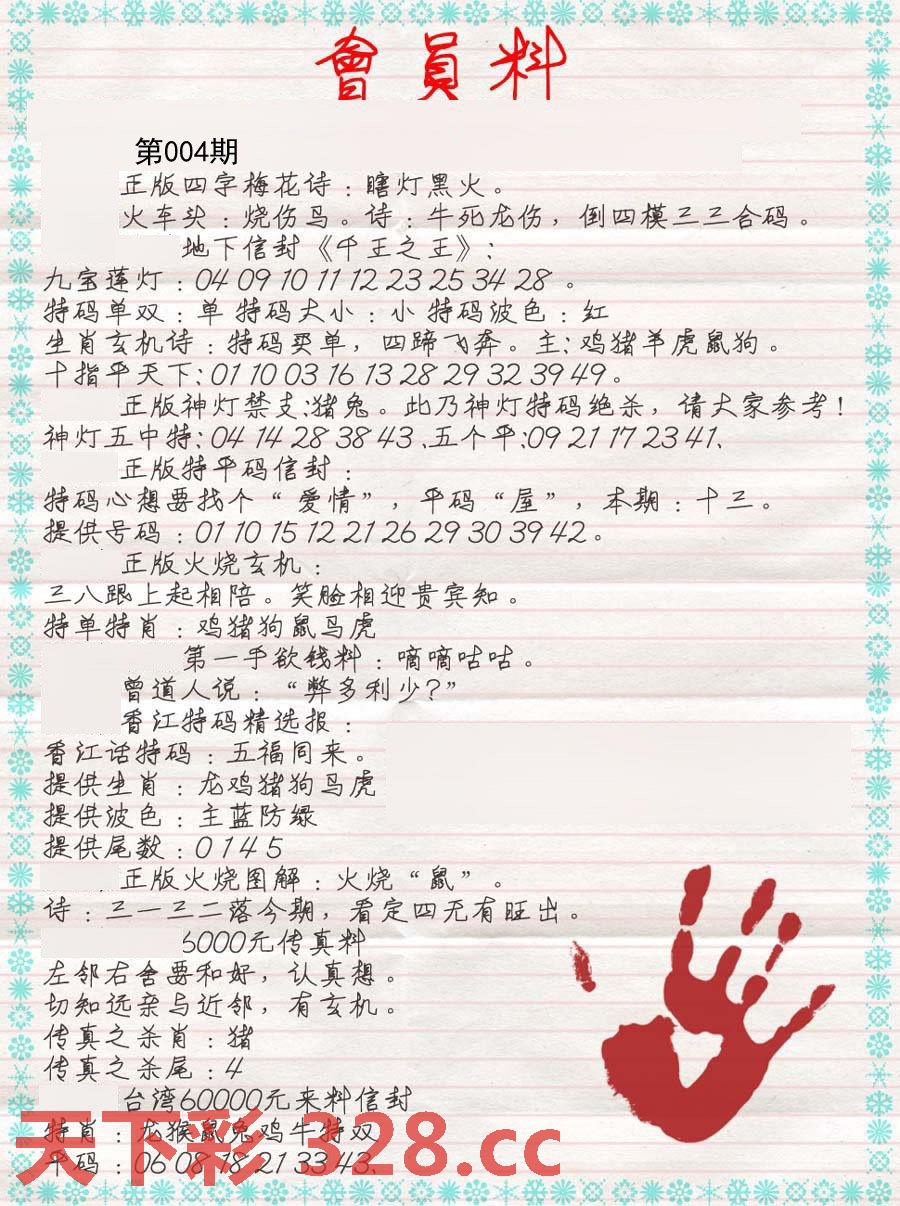 會員料
第004期
正版四字梅花诗：瞎灯黑火。
火车头：烧伤鸟。诗：牛死龙伤，倒四模三三合码。
地下信封《千王之王》：
九宝莲灯：04 09 10 11 12 23 25 34 28 。
特码单双：单 特码大小：小 特码波色：红
生肖玄机诗：特码买单，四蹄飞奔。主：鸡猪羊虎鼠狗。
十指平天下：01 10 03 16 13 28 29 32 39 49。
正版神灯禁支：猪兔。此乃神灯特码绝杀，请大家参考！
神灯五中特：04 14 28 38 43、五个平：09 21 17 23 41、
正版特平码信封：
特码心想要找个“爱情”，平码“屋”，本期：十三。
提供号码：01 10 15 12 21 26 29 30 39 42。
正版火烧玄机：
三八跟上起相陪。笑脸相迎贵宾知。
特单特肖：鸡猪狗鼠马虎
第一手欲钱料：嘀嘀咕咕。
曾道人说：“弊多利少？”
香江特码精选报：
香江话特码：五福同来。
提供生肖：龙鸡猪狗马虎
提供波色：主蓝防绿
提供尾数：0 1 4 5
正版火烧图解：火烧“鼠”。
诗：三一三二落今期，看定四无有旺出。
6000元传真料
左邻右舍要和好，认真想。
切知远亲与近邻，有玄机。
传真之杀肖：猪
传真之杀尾：4
台湾60000元来料信封
特肖：龙猴鼠兔鸡牛特双
平码：06 08 18 21 33 43、
天下彩 328.cc